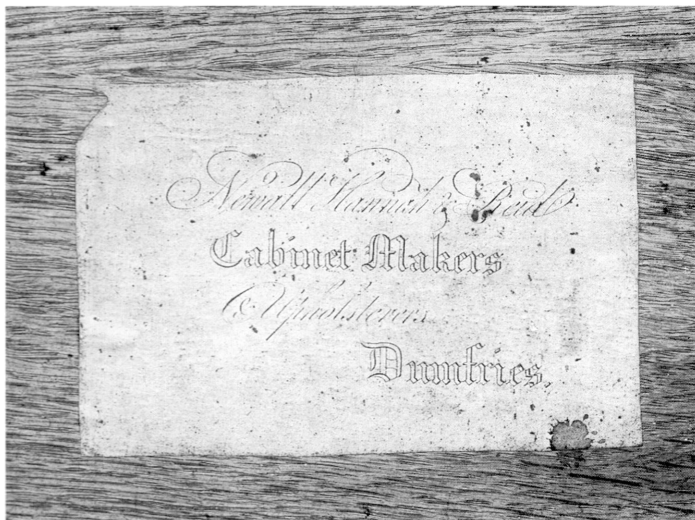 Newall Hannah & Reid
Cabinet Makers
& Upholsterers
Dumfries.